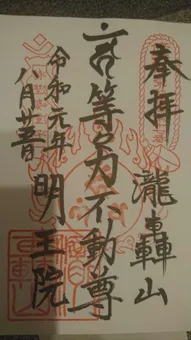 奉拝
瀧轟山
等力不動尊
令和元年
八月廿五日
明王院